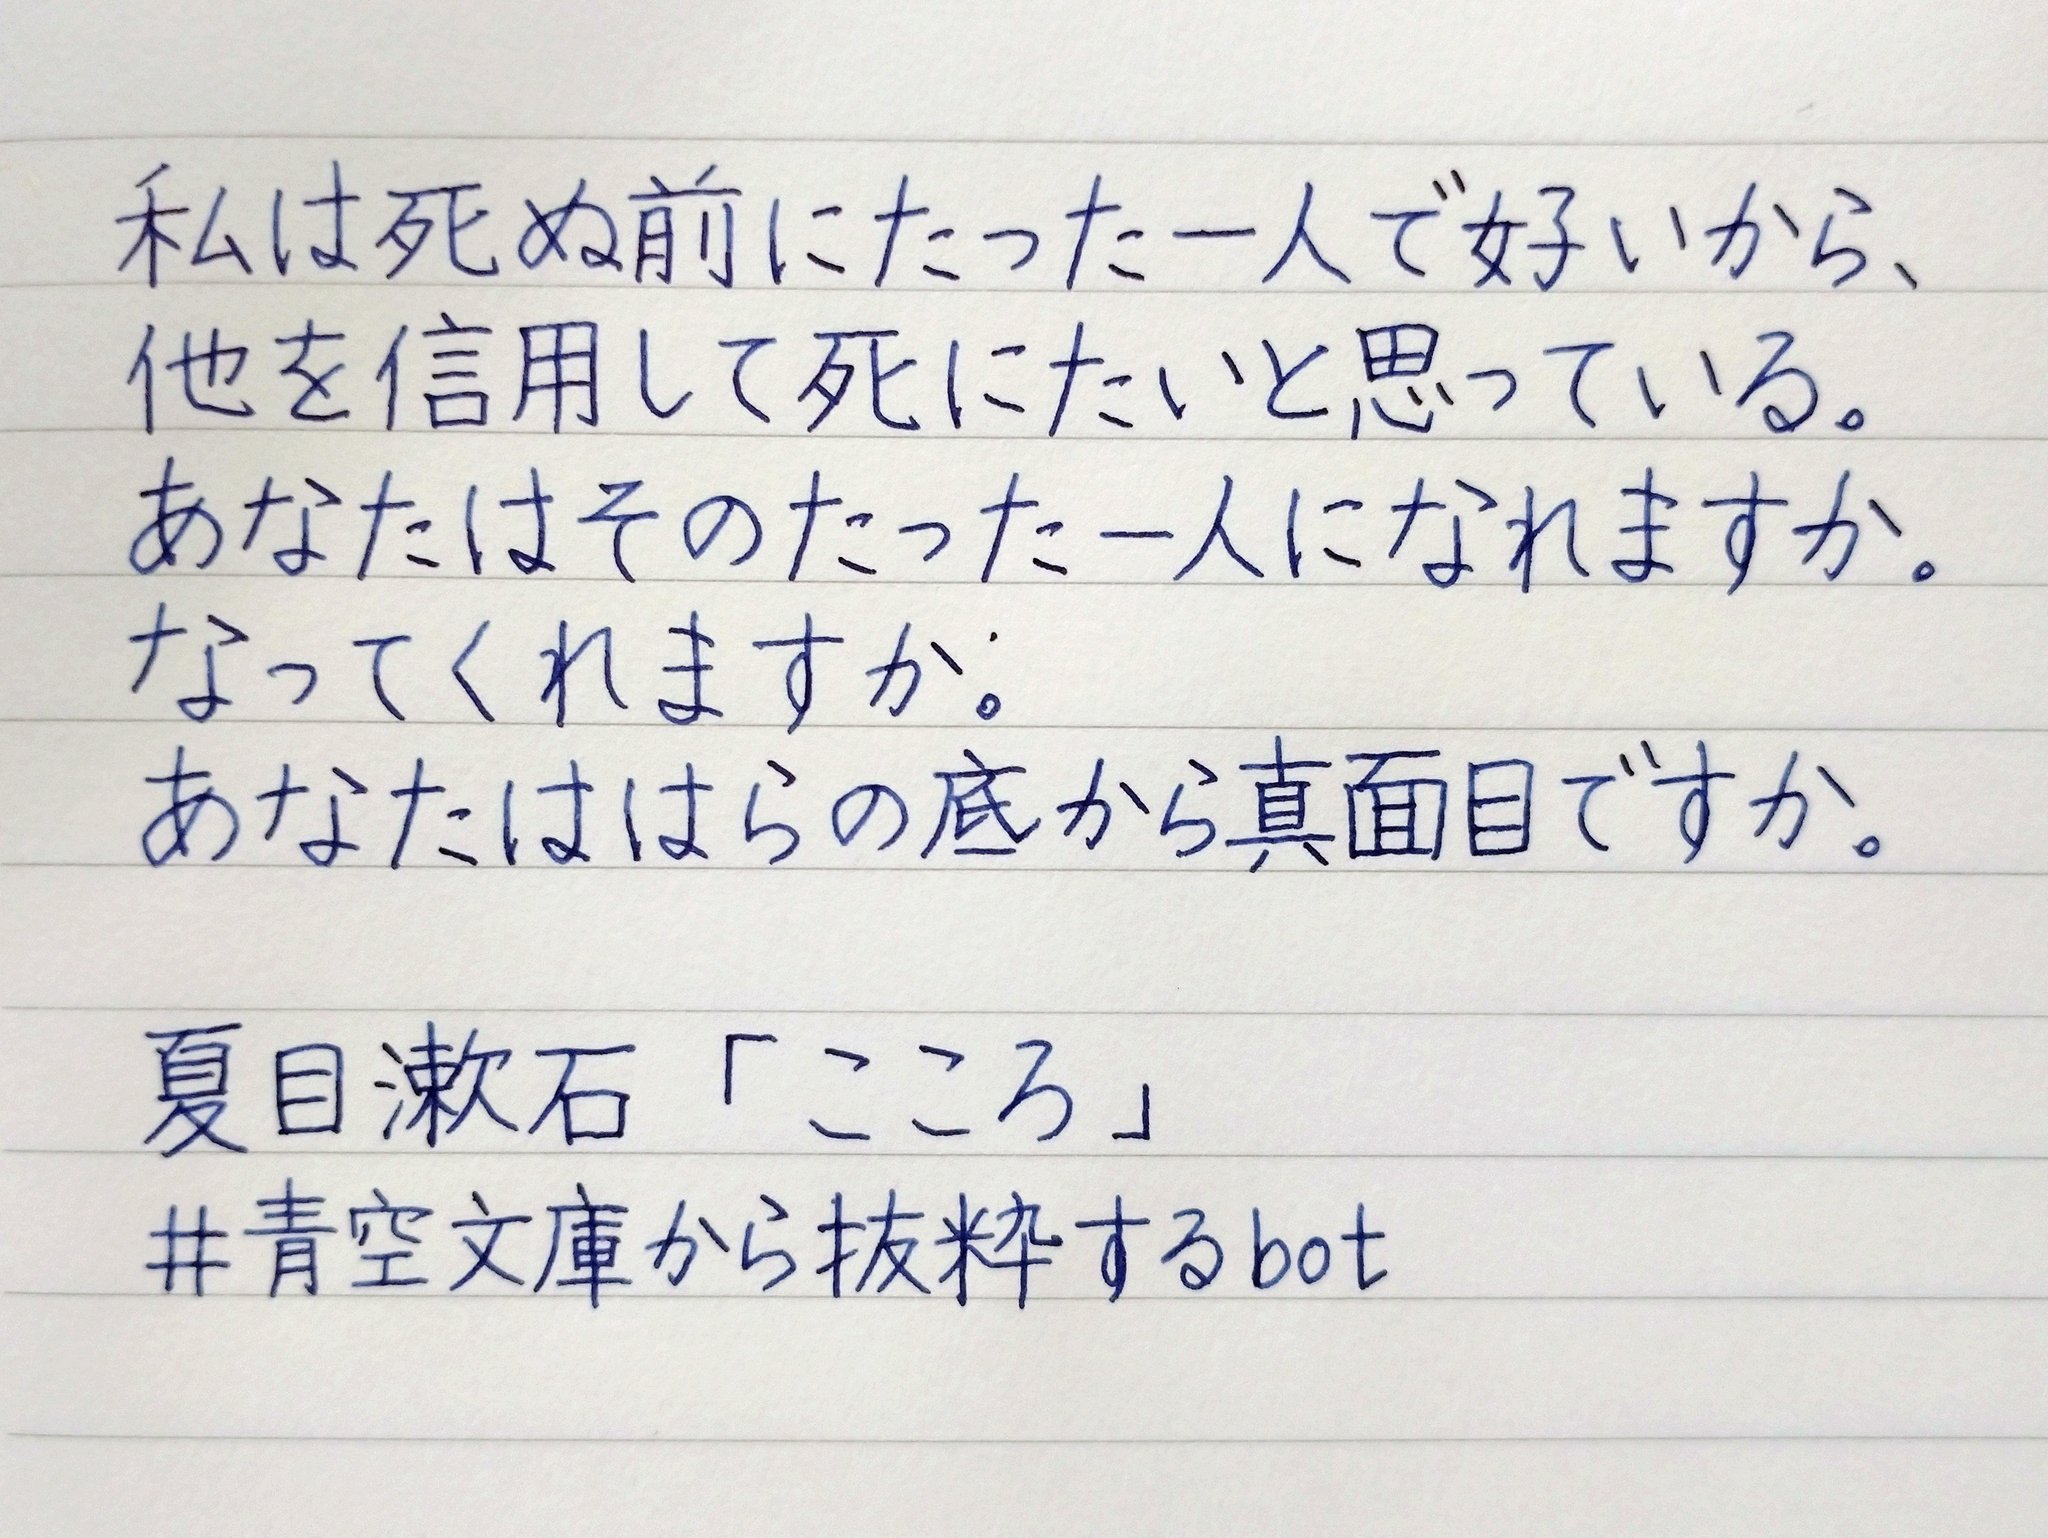 私は死ぬ前にたった一人で好いから、
他を信用して死にたいと思っている。
あなたはそのたった一人になれますか。
なってくれますか。
あなたははらの底から真面目ですか。
夏目漱石「こころ」
#青空文庫から抜粋するbot